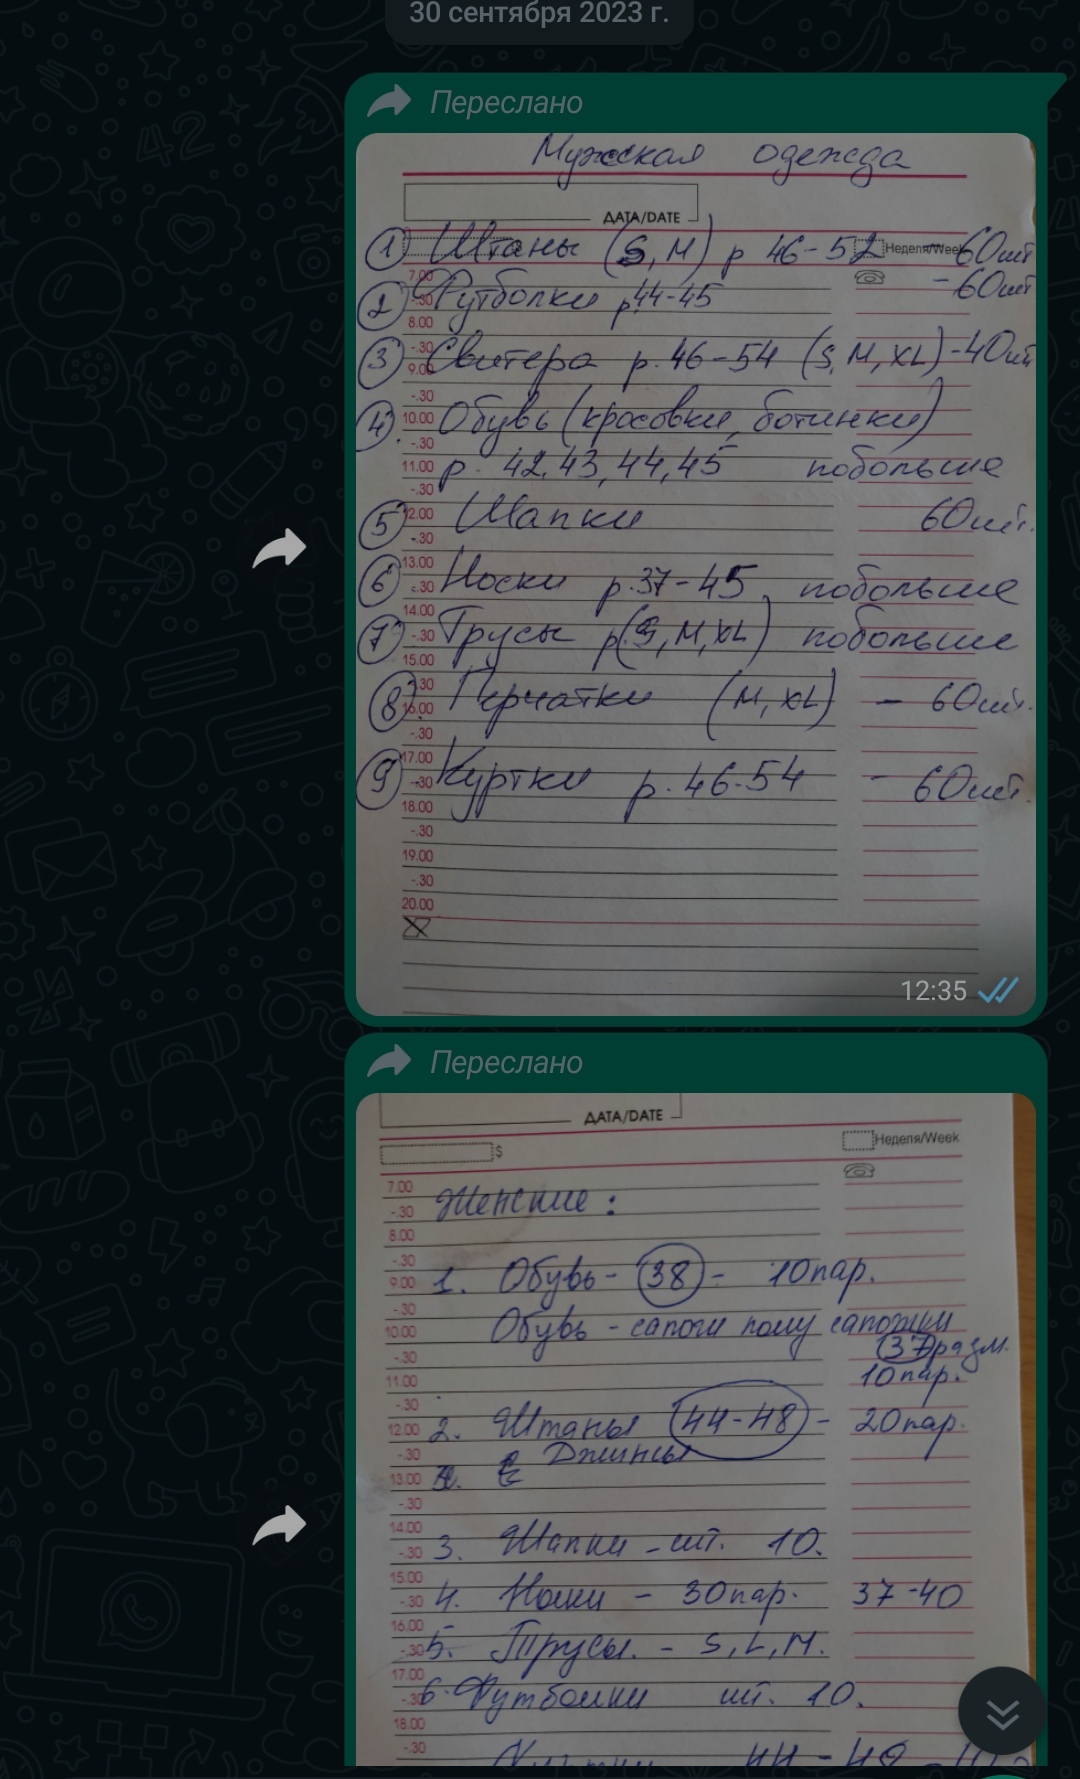 30 сентября 2023 г.
Переслано
Мужская одежда
ДАТА/DATE
Неделя/Week
1 Штаны (S, M) р 46-52 - 60шт
7.00
2 Футболки р.44-45 - 60шт
-.30
8.00
-.30
3 Свитера р. 46-54 (S, M, XL) - 40шт
9.00
-.30
4. Обувь (кросовки, ботинки)
10.00
-.30
р. 42, 43, 44, 45 побольше
11.00
-.30
5 Шапки 60шт.
12.00
-.30
13.00
6 Носки р.37-45 побольше
-.30
14.00
7 Трусы р(S, M, XL) побольше
-.30
15.00
-.30
8. Перчатки (M, XL) - 60шт.
16.00
-.30
17.00
9 Куртки р. 46-54 - 60шт.
-.30
18.00
-.30
19.00
-.30
20.00
12:35
Переслано
ДАТА/DATE
$
Неделя/Week
7.00
Женские:
-.30
8.00
-.30
1. Обувь - 38 - 10пар.
9.00
-.30
Обувь - сапоги полу сапожки
10.00
37 разм.
-.30
10пар.
11.00
-.30
2. Штаны 44-48 - 20пар.
12.00
-.30
Джинсы
13.00
-.30
14.00
3. Шапки - шт. 10.
-.30
15.00
4. Носки - 30пар. 37-40
-.30
16.00
5. Трусы. - S, L, M.
-.30
17.00
6. Футболки шт. 10.
-.30
18.00
-.30